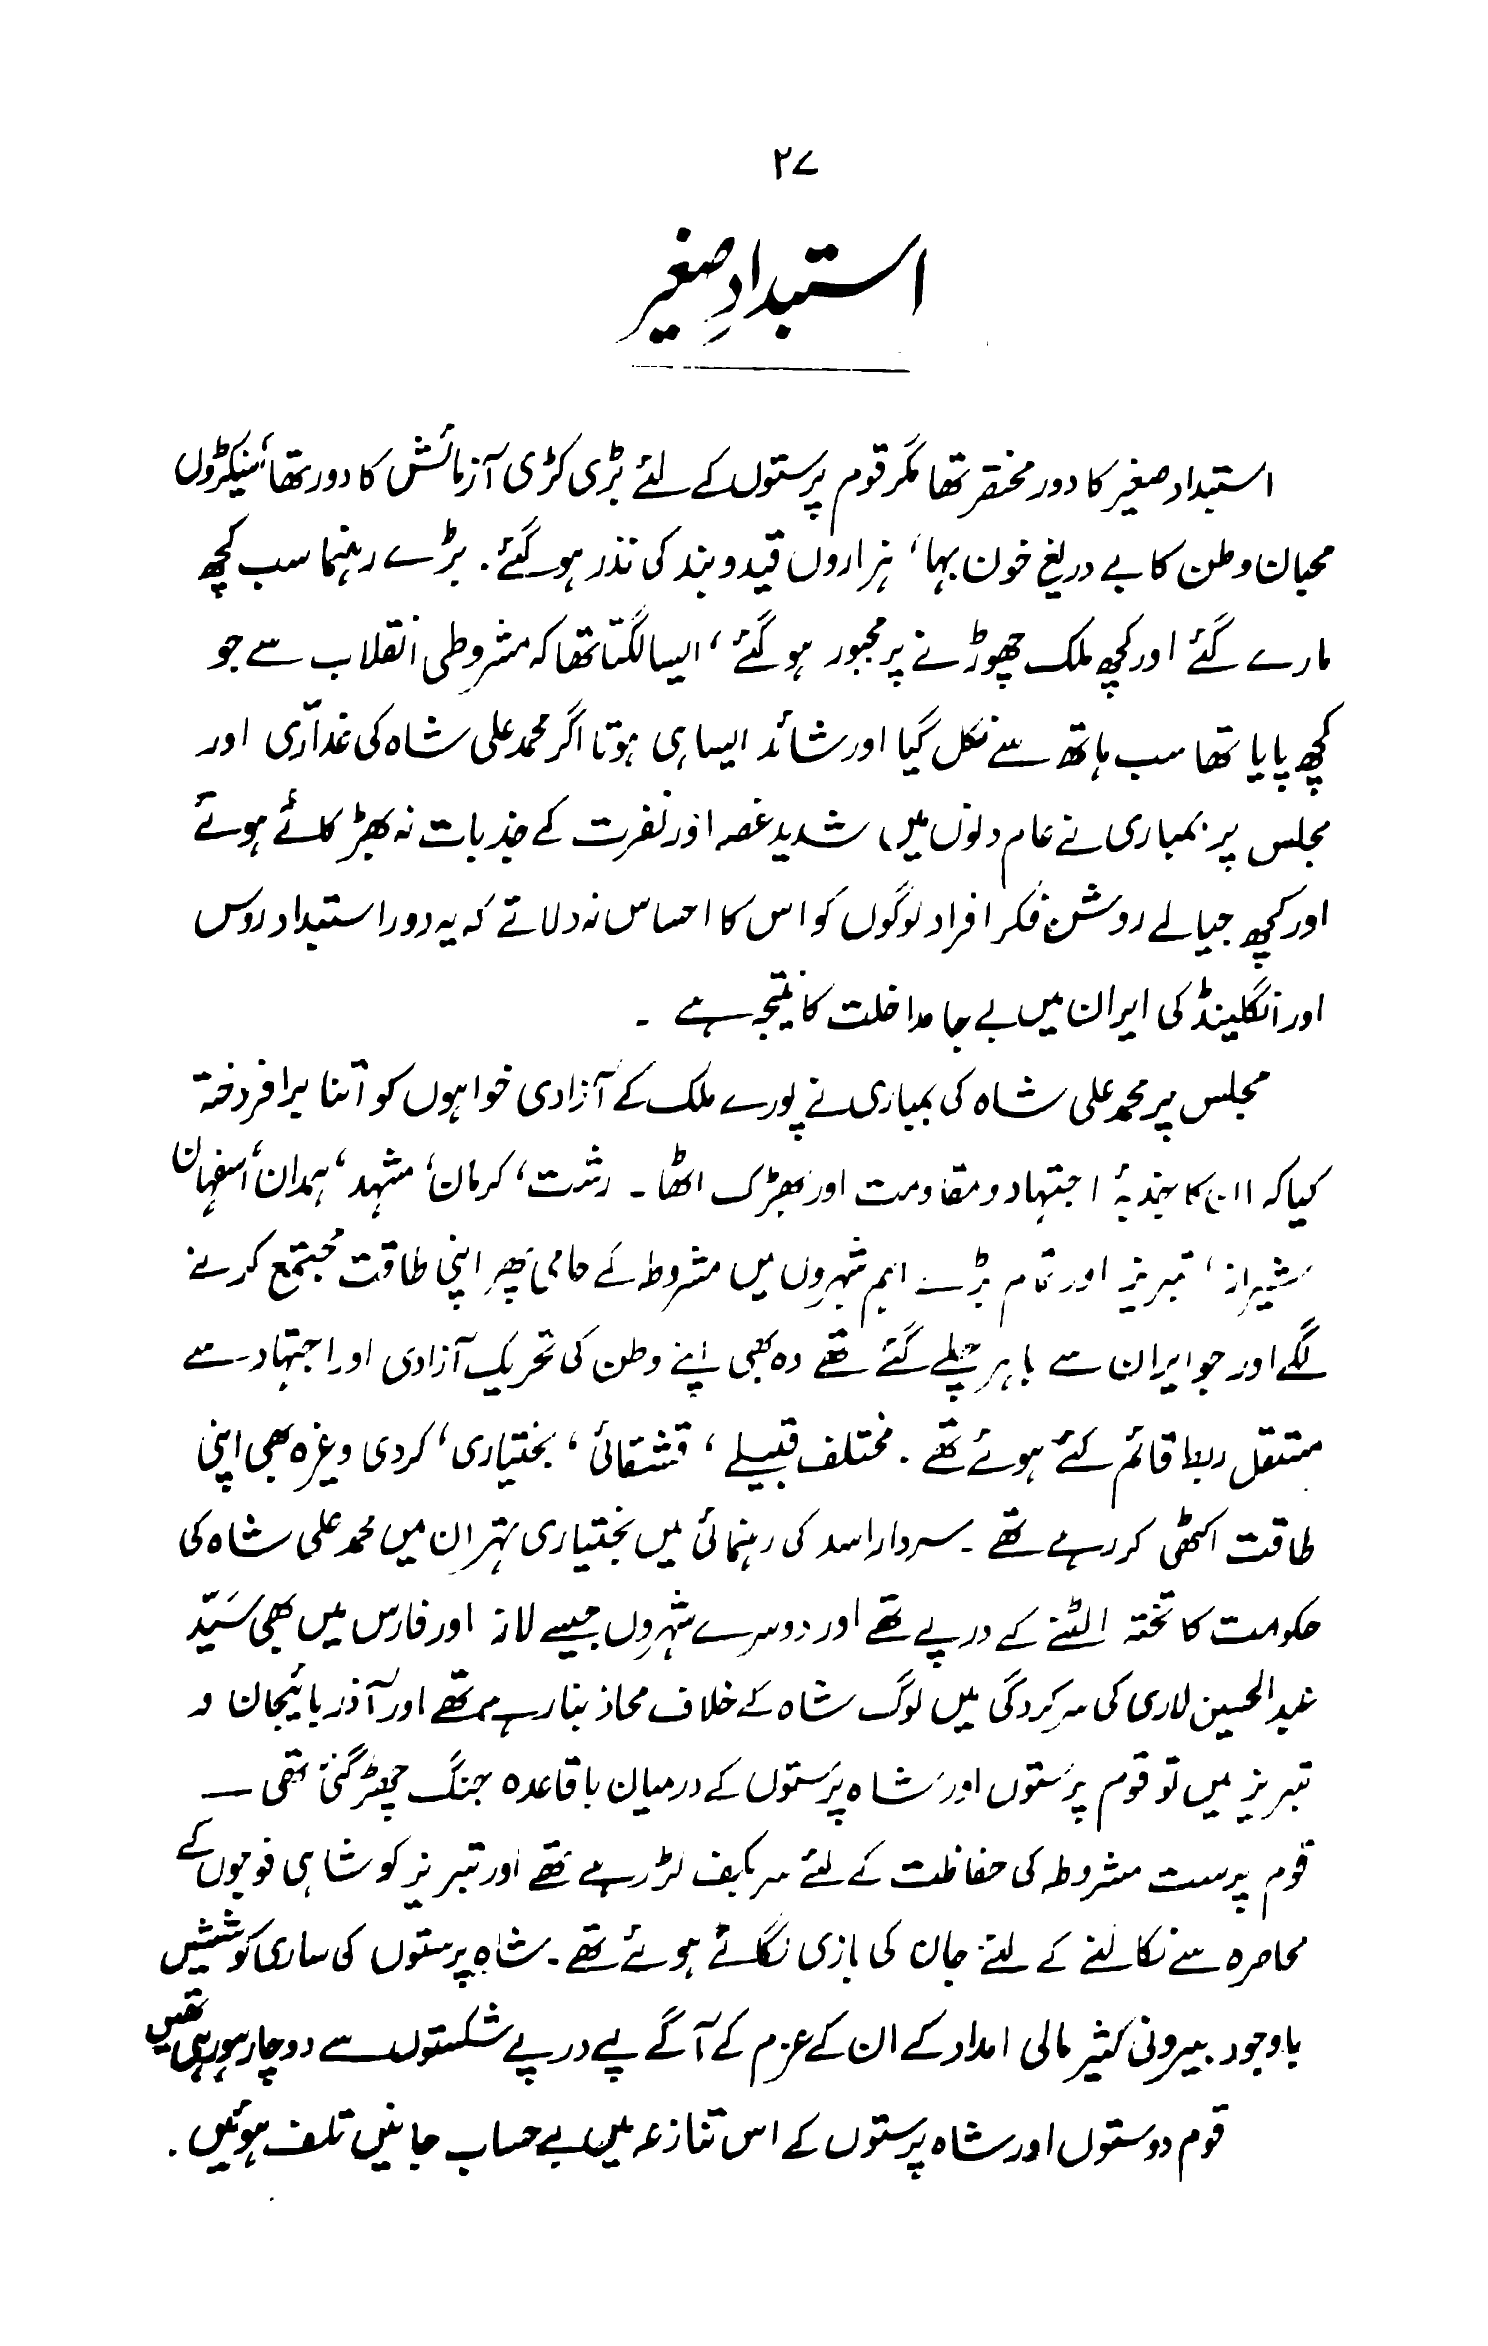 ۲۷
استبدادِ صغیر
استبداد صغیر کا دور مختصر تھا مگر قوم پرستوں کے لئے بڑی کڑی آزمائش کا دور تھا، سینکڑوں
محبان وطن کا بے دریغ خون بہا، ہزاروں قید و بند کی نذر ہو گئے۔ بڑے رہنما سب کچھ
مارے گئے اور کچھ ملک چھوڑنے پر مجبور ہو گئے، ایسا لگتا تھا کہ مشروطی انقلاب سے جو
کچھ پایا تھا سب ہاتھ سے نکل گیا اور شائد ایسا ہی ہوتا اگر محمد علی شاہ کی غدّاری اور
مجلس پر بمباری نے عام دلوں میں شدید غصہ اور نفرت کے جذبات نہ بھڑکائے ہوئے
اور کچھ جیالے روشن فکر افراد لوگوں کو اس کا احساس نہ دلاتے کہ یہ دور استبداد روس
اور انگلینڈ کی ایران میں بے جا مداخلت کا نتیجہ ہے ۔
مجلس پر محمد علی شاہ کی بمباری نے پورے ملک کے آزادی خواہوں کو اتنا برافروختہ
کیا کہ ان کا جذبۂ اجتہاد و مقاومت اور بھڑک اٹھا ۔ رشت، کرمان، مشہد، ہمدان، اصفہان
شیراز، تبریز اور تمام بڑے اہم شہروں میں مشروطہ کے حامی پھر اپنی طاقت مجتمع کرنے
لگے اور جو ایران سے باہر چلے گئے تھے وہ بھی اپنے وطن کی تحریک آزادی اور اجتہاد سے
مستقل ربط قائم کئے ہوئے تھے ۔ مختلف قبیلے، قشقائی، بختیاری، کردی وغیرہ بھی اپنی
طاقت اکٹھی کر رہے تھے ۔ سردار اسد کی رہنمائی میں بختیاری تہران میں محمد علی شاہ کی
حکومت کا تختہ الٹنے کے درپے تھے اور دوسرے شہروں جیسے لار اور فارس میں بھی سَیّد
عبد الحسین لاری کی سرکردگی میں لوگ شاہ کے خلاف محاذ بنا رہے تھے اور آذر بائیجان و
تبریز میں تو قوم پرَستوں اور شاہ پرَستوں کے درمیان باقاعدہ جنگ چھڑ گئی تھی —
قوم پرست مشروطہ کی حفاظت کے لئے سر بکف لڑ رہے تھے اور تبریز کو شاہی فوجوں کے
محاصرہ سے نکالنے کے لئے جان کی بازی لگائے ہوئے تھے ۔ شاہ پرستوں کی ساری کوششیں
باوجود بیرونی کثیر مالی امداد کے ان کے عزم کے آگے پے در پے شکستوں سے دوچار ہو رہی تھیں
قوم دوستوں اور شاہ پرستوں کے اس تنازعہ میں بے حساب جانیں تلف ہوئیں ۔